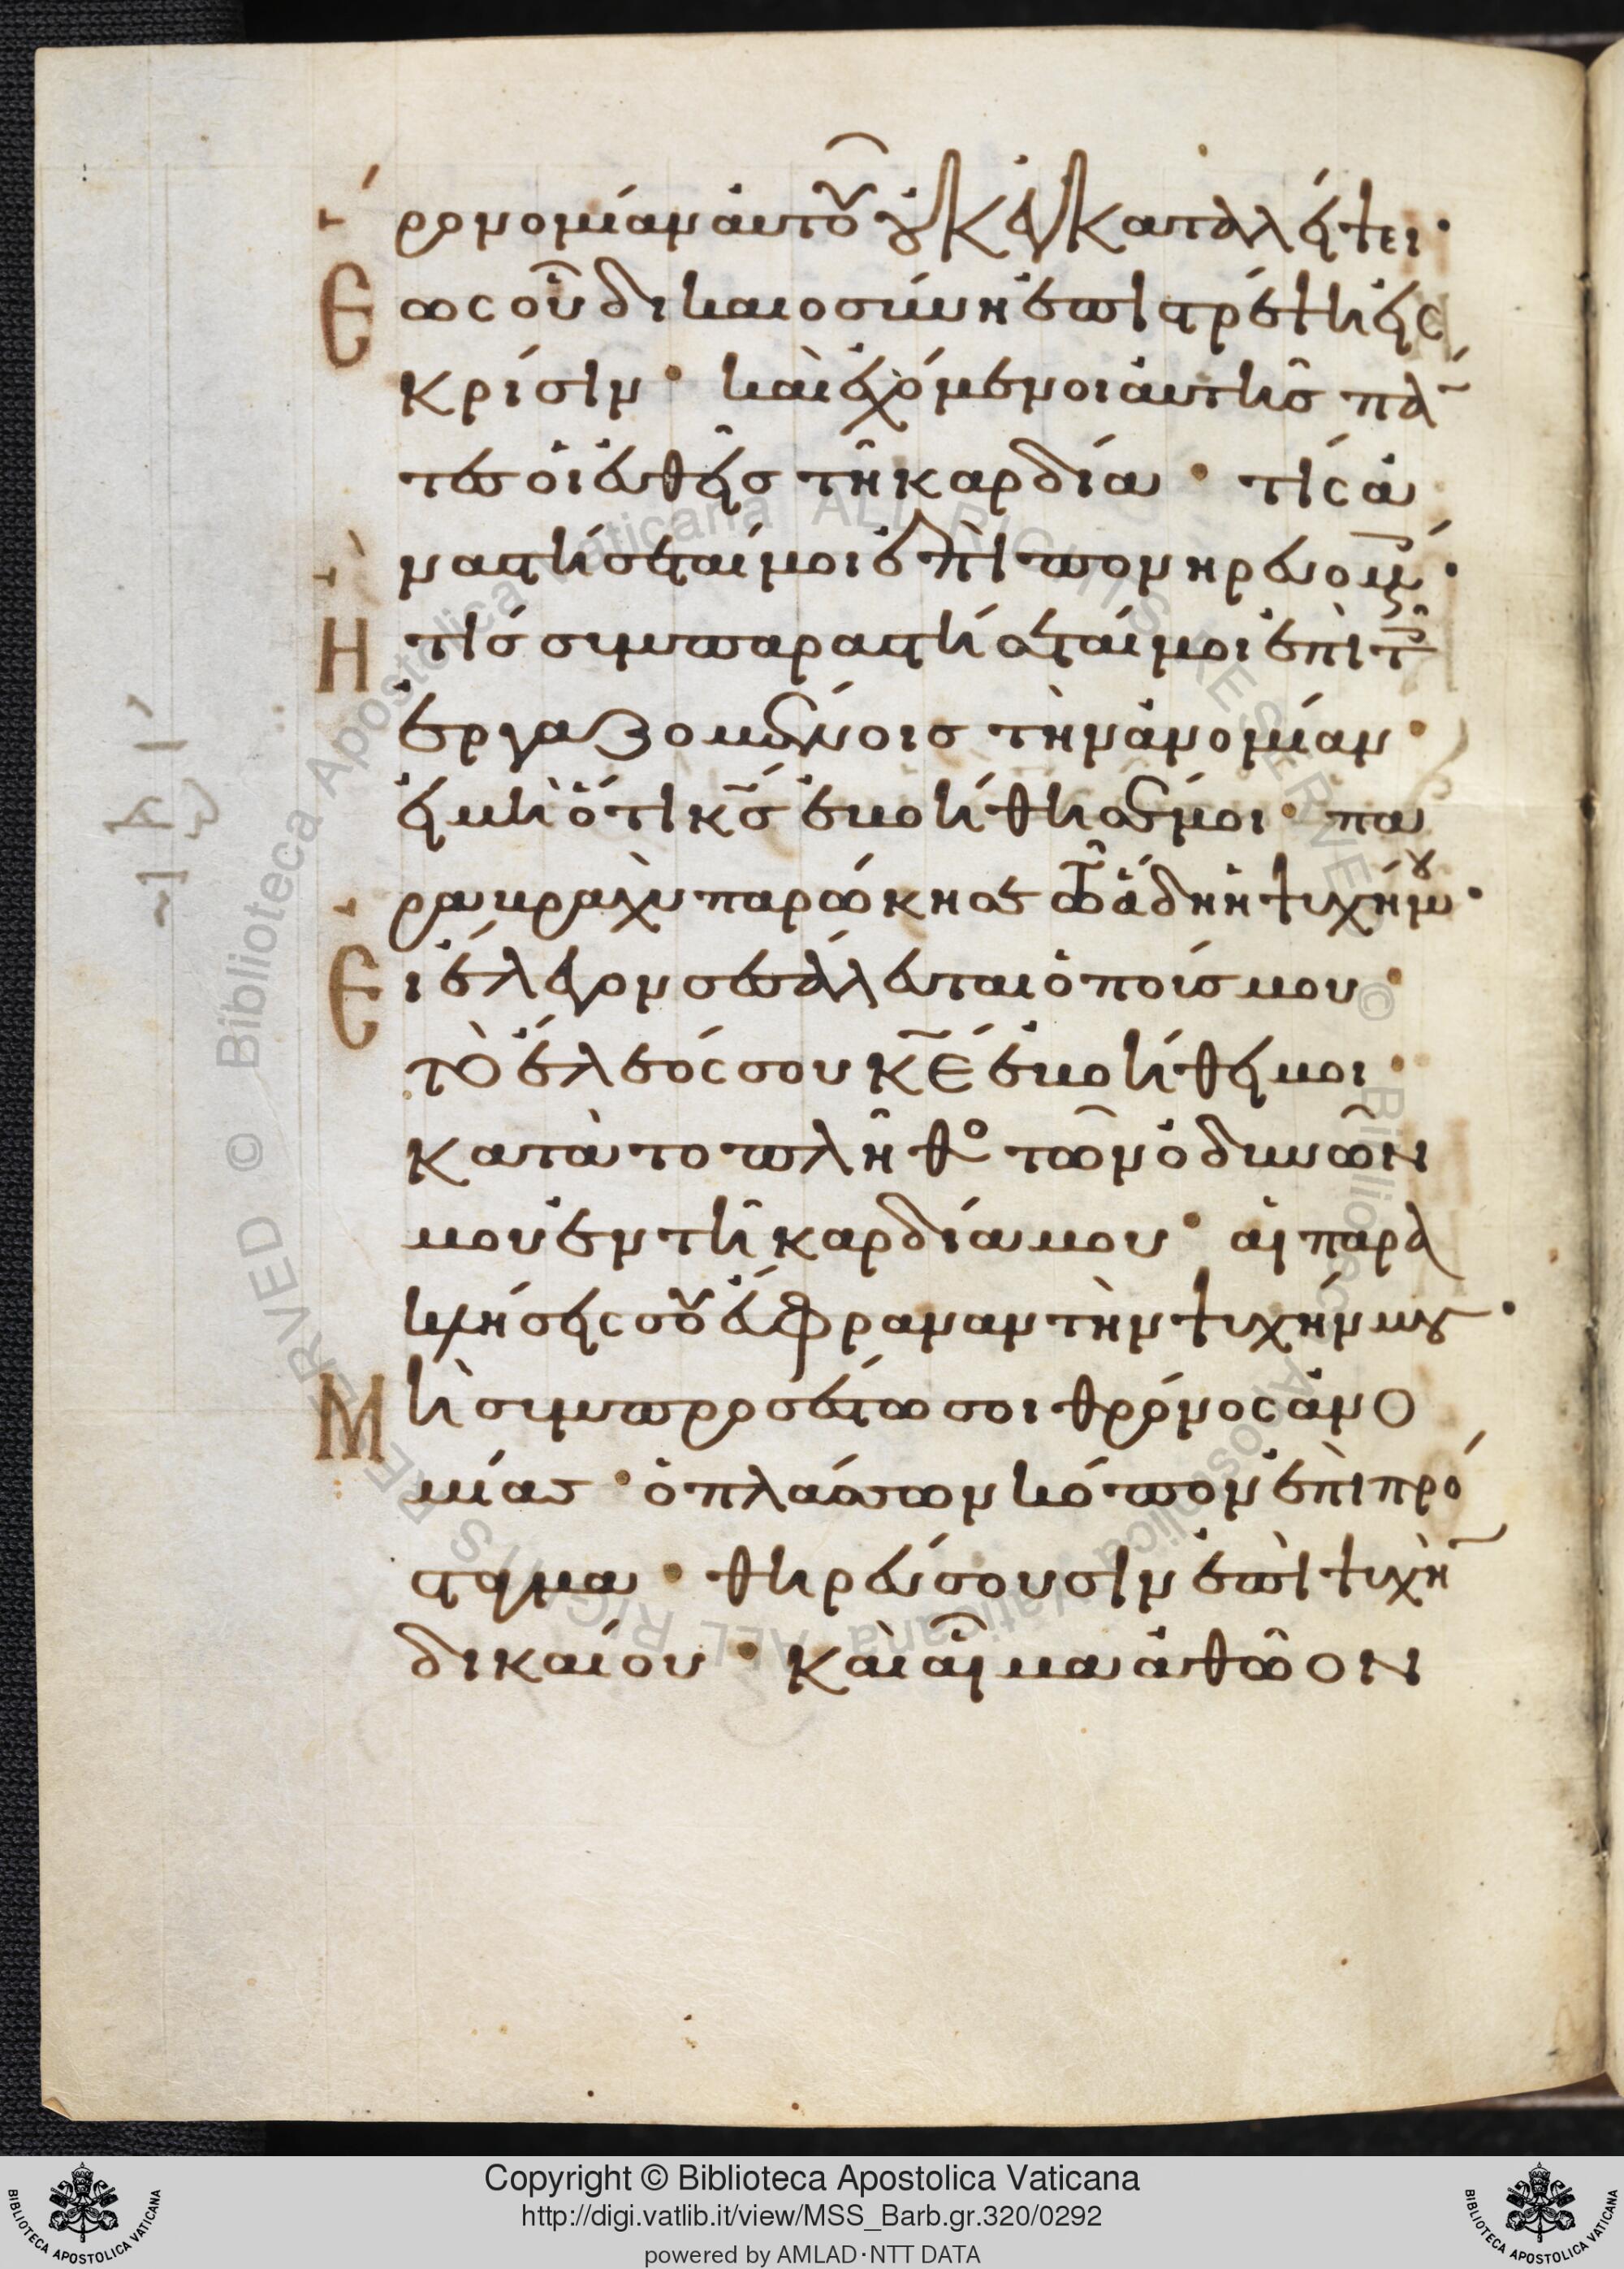 ρονομίαν αὐτοῦ οὐκ ἐγκαταλείψει·
Εως οὗ δικαιοσύνη ἐπιστρέψη εἰς
κρίσιν· καὶ ἐχόμενοι αὐτῆς πά̄
τες οἱ εὐθεῖς τῆ καρδία· τίς ἀ
ναστήσεταί μοι ἐπὶ πονηρευομέ·
Η τίς συμπαραστήσεταί μοι ἐπὶ τ
ἐργαζομένοις τὴν ἀνομίαν·
εἰ μὴ ὅτι κ̅ς̅ ἐβοήθησέ μοι· πα
ρα βραχὺ παρώκησε τῶ ἅδη ἡ ψυχή μου·
Ει ἔλεγον σεσάλευται ὁ ποῦς μου·
τὸ ἔλεός σου κ̅ε̅ ἐβοήθει μοι·
κατὰ το πλῆθο τῶν ὀδυνῶν
μου ἐν τῆ καρδία μου· αἱ παρα
κλήσεις σοῦ εὔφραναν τὴν ψυχήν μου·
Μὴ συμπροσέστω σοι θρόνος ἀνο
μίας· ὁ πλάσσων κόπον ἐπὶ πρό
σταγμα· θηρεύσουσιν ἐπὶ ψυχὴ̄
δικαίου· καὶ αἷμα ἀθῶον
Copyright © Biblioteca Apostolica Vaticana
http://digi.vatlib.it/view/MSS_Barb.gr.320/0292
powered by AMLAD·NTT DATA
BIBLIOTECA APOSTOLICA VATICANA
BIBLIOTECA APOSTOLICA VATICANA